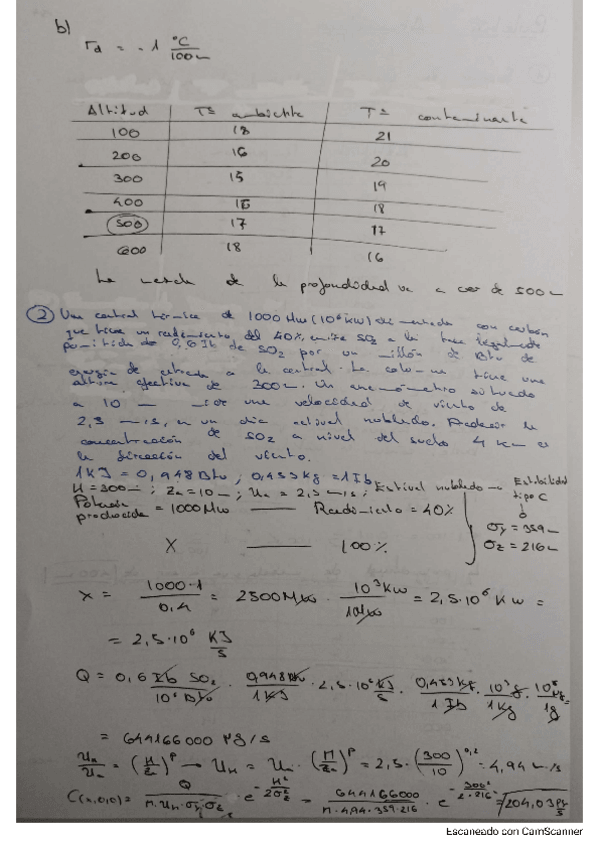 b)
Γd = -1 °C/100m
Altitud | Tª ambiente | Tª contaminante
100 | 18 | 21
200 | 16 | 20
300 | 15 | 19
400 | 16 | 18
500 | 17 | 17
600 | 18 | 16
La mezcla de la profundidad va a ser de 500m
② Una central térmica de 1000 Mw (10⁶ kW) alimentada con carbón
que tiene un rendimiento del 40%, emite SO₂ a la tasa legalmente
permitida de 0,6 lb de SO₂ por un millón de Btu de
energía de entrada a la central. La columna tiene una
altura efectiva de 300m. Un anemómetro situado
a 10 m mide una velocidad de viento de
2,5 m/s, en un día estival nublado. Predecir la
concentración de SO₂ a nivel del suelo 4 km en
la dirección del viento.
1KJ = 0,948 Btu ; 0,453 kg = 1 lb
H = 300m ; Za = 10m ; Ua = 2,5 m/s ; Estival nublado → Estabilidad tipo C
σy = 359m
σz = 216m
Potencia producida = 1000 Mw —— Rendimiento = 40%
X —— 100%
X = 1000·1/0,4 = 2500 Mw · 10³ Kw/1 Mw = 2,5·10⁶ Kw =
= 2,5·10⁶ KJ/s
Q = 0,6 lb SO₂/10⁶ Btu · 0,948 Btu/1 KJ · 2,5·10⁶ KJ/s · 0,453 kg/1 lb · 10³ g/1 kg · 10⁶ μg/1g =
= 644166000 μg/s
= (H/Za)^p → UH = Ua · (H/Za)^p = 2,5 · (300/10)^0,2 = 4,94 m/s
C(x,0,0) = Q/π·UH·σy·σz · e^-H²/2σz² = 644166000/π·4,94·359·216 · e^-300²/2·216² = 204,03 μg/s
Escaneado con CamScanner